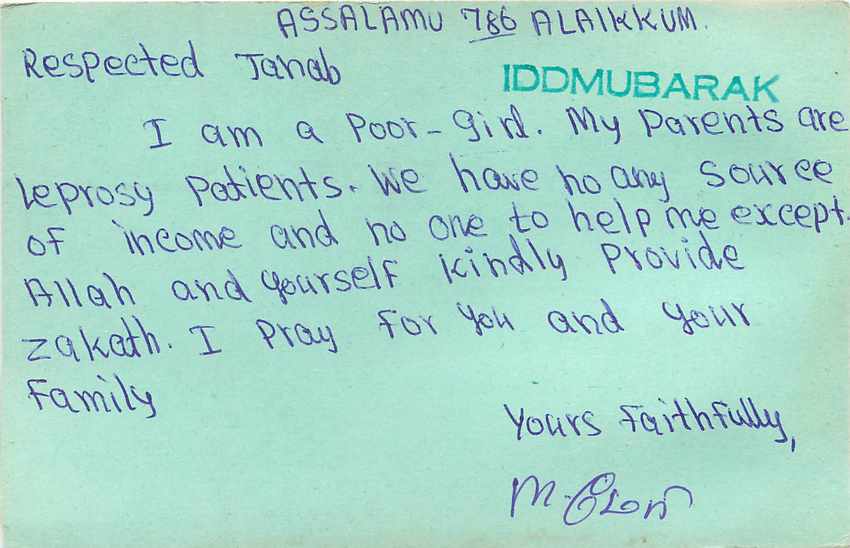 ASSALAMU 786 ALAIKKUM.
Respected Janab
IDDMUBARAK
I am a Poor-girl. My Parents are
leprosy Patients. We have no any source
of income and no one to help me except.
Allah and yourself kindly Provide
zakath. I Pray for you and your
family
Yours faithfully,
M.